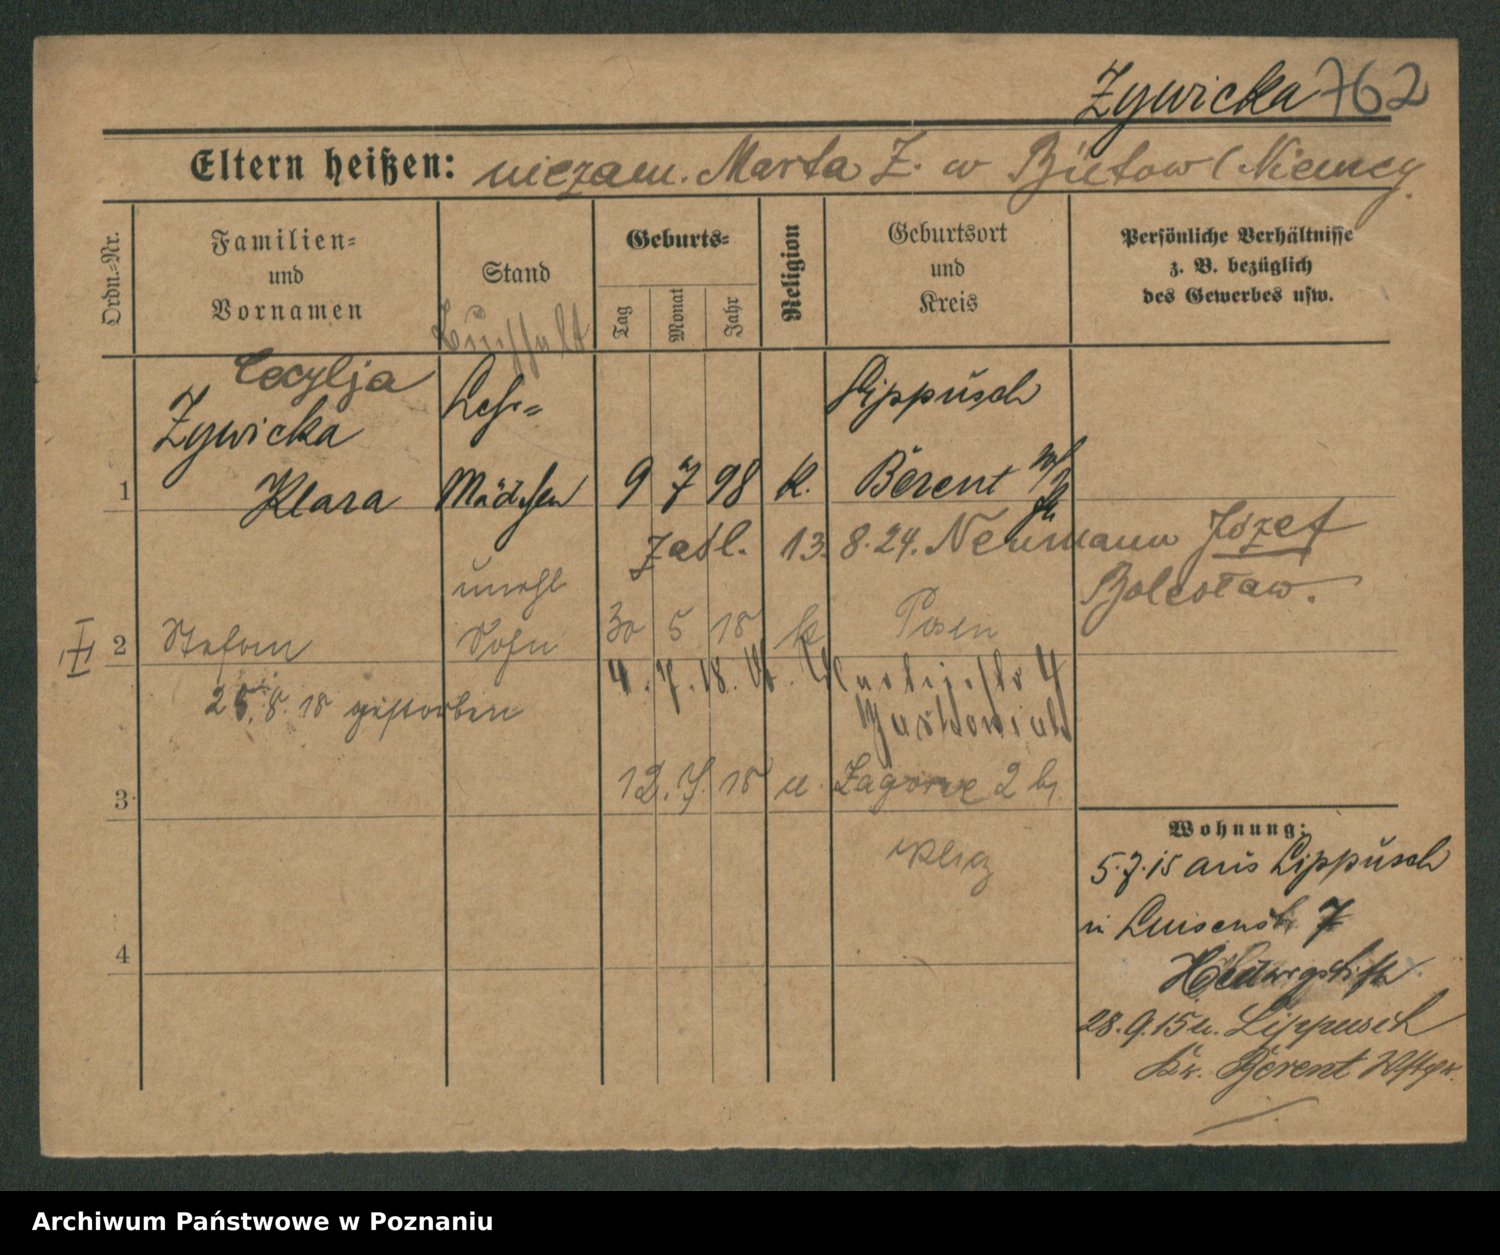 Zywicka 762
Eltern heißen: niezam. Marta Z. w Bütow (Niemcy
Ordn.-Nr.
Familien-
und
Vornamen
Stand
Geburts-
Tag
Monat
Jahr
Religion
Geburtsort
und
Kreis
Persönliche Verhältnisse
z. B. bezüglich
des Gewerbes usw.
Cecylja
Zywicka
Lehr-
Lippusch
1 Klara Mädchen 9 7 98 k. Berent
zaśl. 13. 8. 24. Neumann Józef
Bolesław.
unehl
II 2 Stefan Sohn 30 5 18 k Posen
4. 7. 18.
25. 8. 18 gestorben
3 12. 7. 18 u. Zagorze 2 b/
4
Wohnung:
5.7.15 aus Lippusch
n Luisenstr. 7
Hedwigstift
28.9.15 u. Lippusch
Kr. Berent Wstpr.
Archiwum Państwowe w Poznaniu